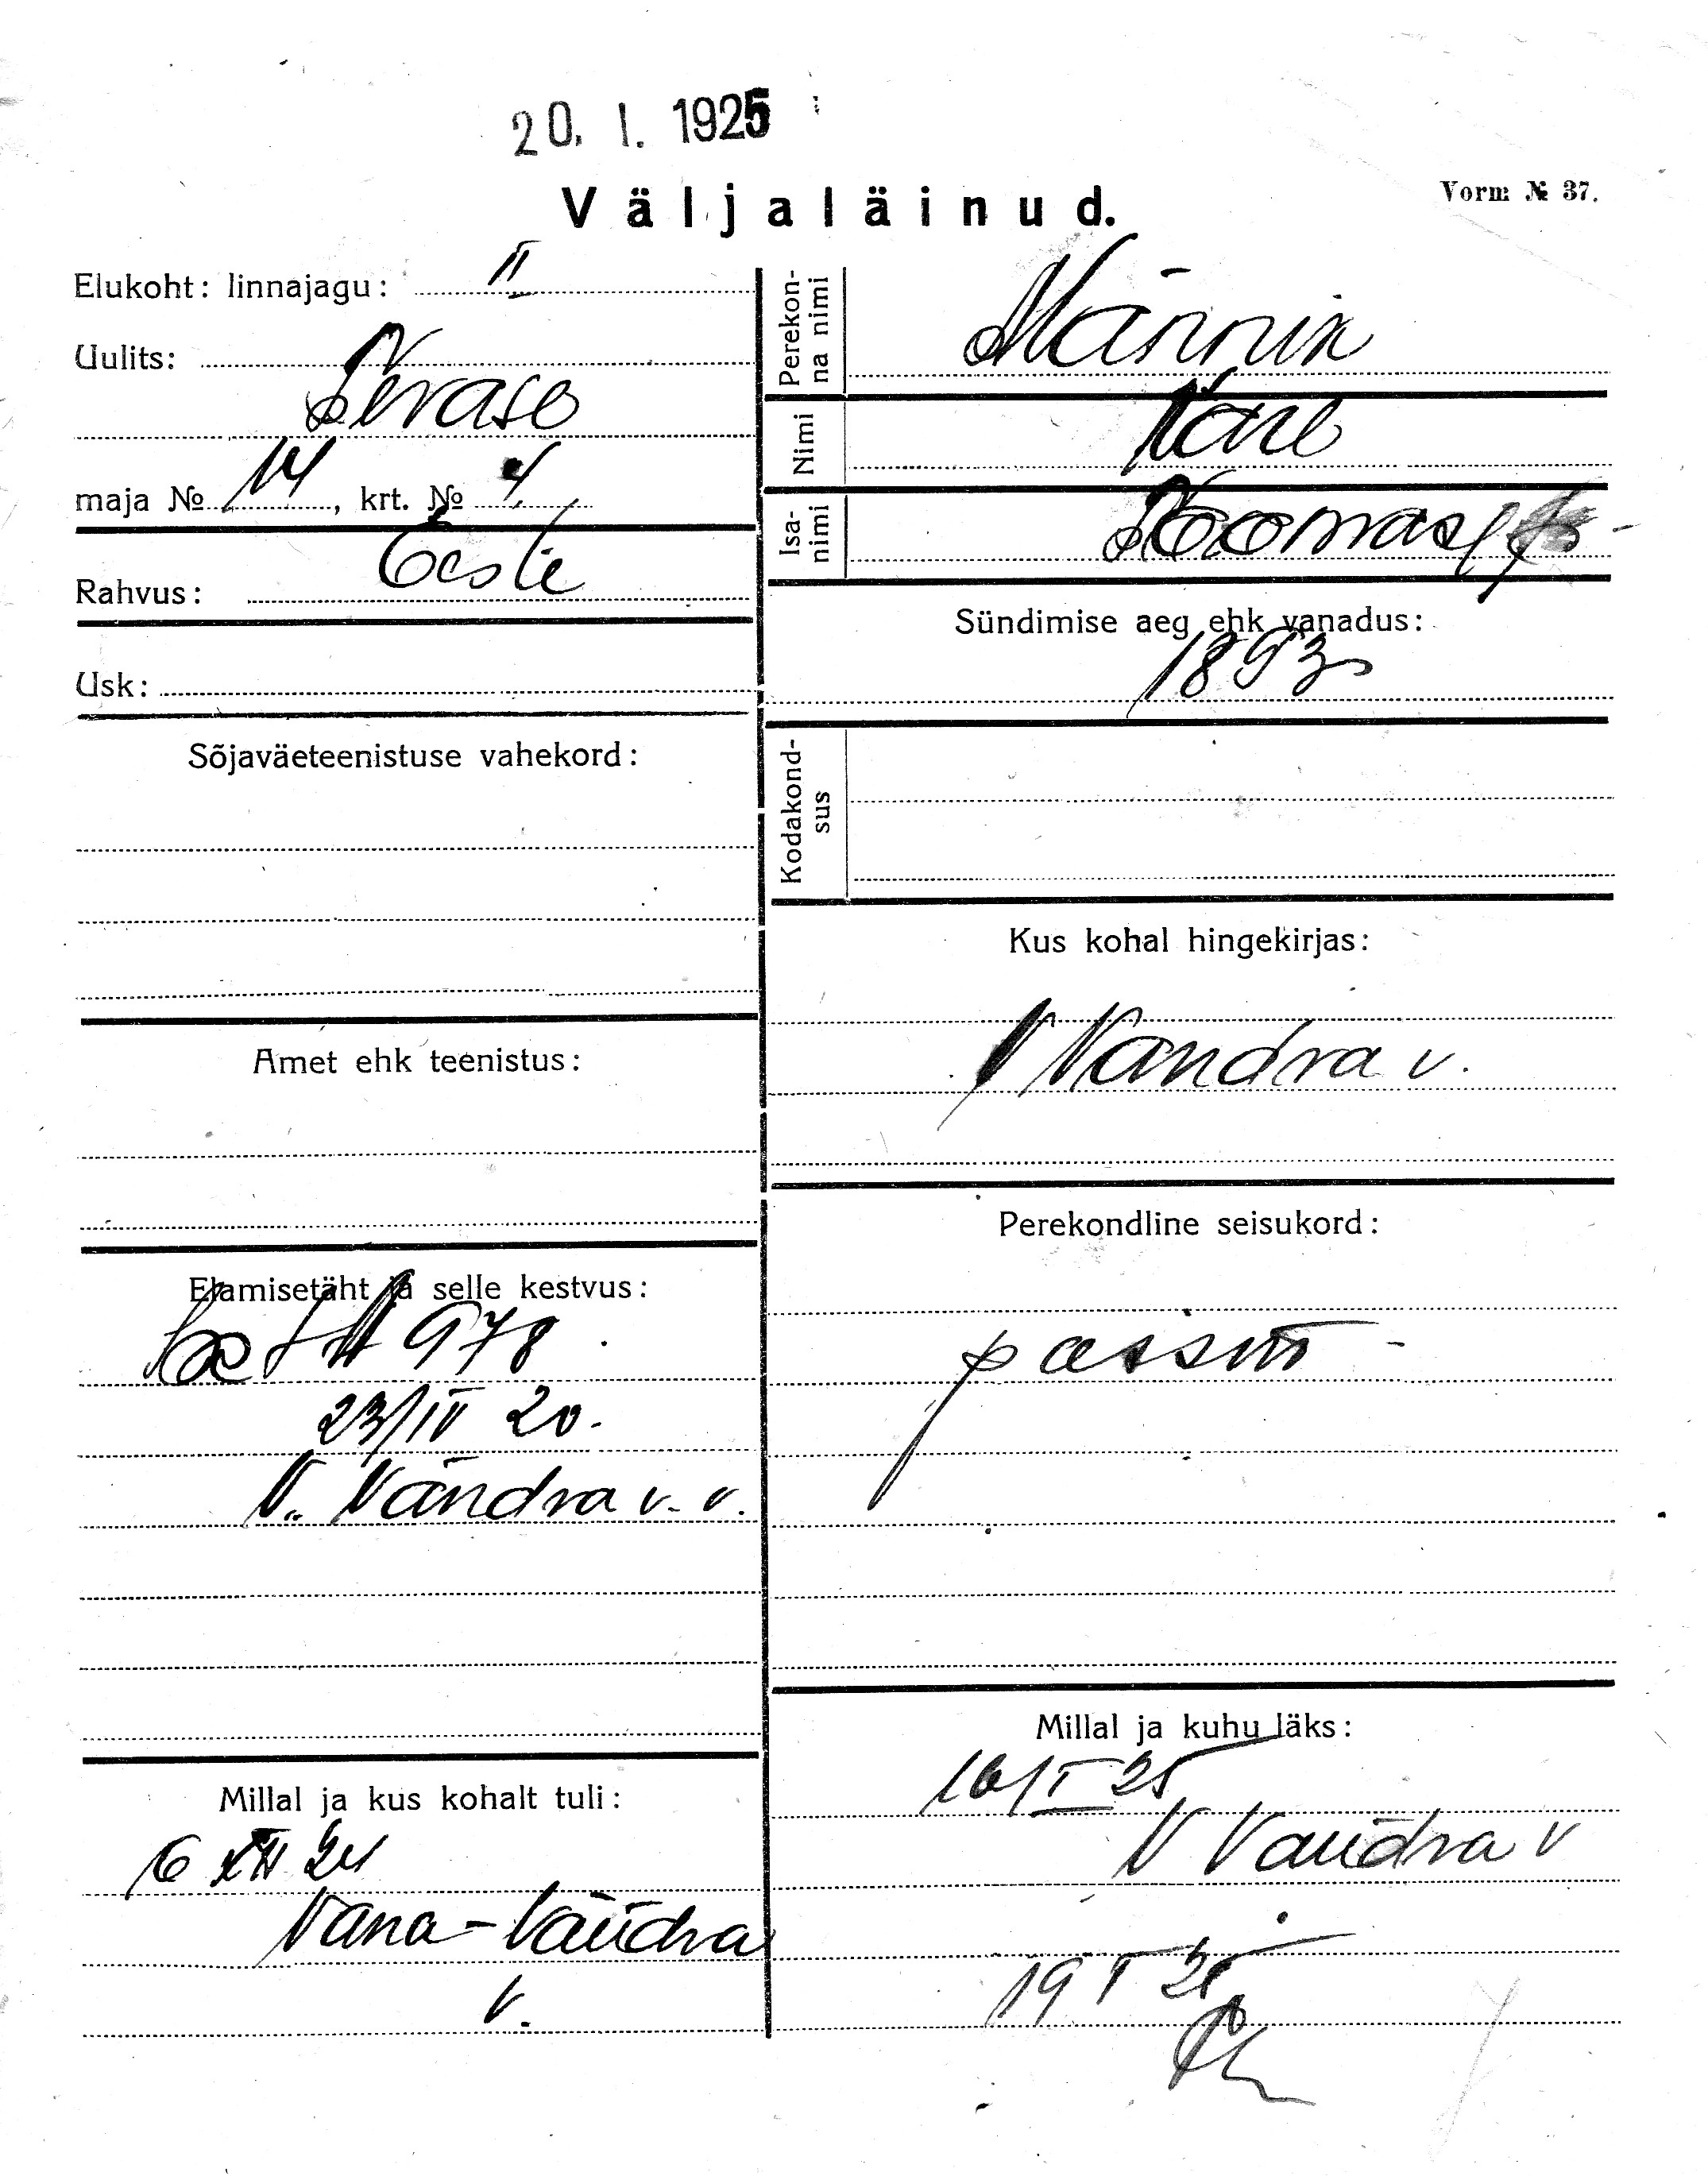 20. I. 1925
Väljaläinud.
Vorm № 37.
Elukoht: linnajagu: II
Uulits:
maja № 14, krt. № 4
Rahvus: Eesti
Usk:
Sõjaväeteenistuse vahekord:
Amet ehk teenistus:
Elamisetäht ja selle kestvus:
978
23/IV 20.
V. Vändra v. v.
Millal ja kus kohalt tuli:
6 XII 24
Vana-Vändra
v.
Perekon-
na nimi
Männik
Nimi
Karl
Isa-
nimi
Toomas
Sündimise aeg ehk vanadus:
1893
Kodakond-
sus
Kus kohal hingekirjas:
V Vandra v.
Perekondline seisukord:
Millal ja kuhu läks:
16/I 25
V Vändra v
19 I 25